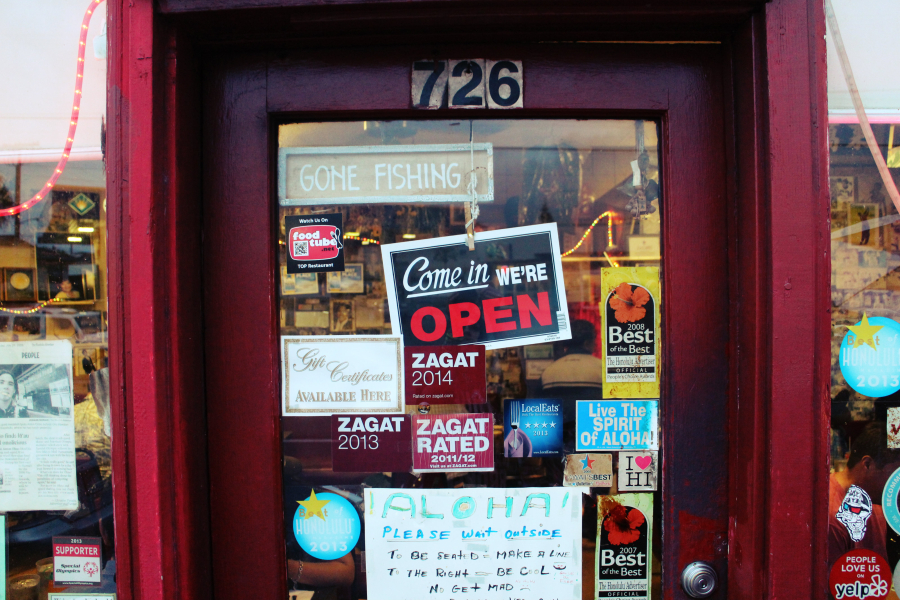 726
GONE FISHING
Watch Us On
foodtube
.net
TOP Restaurant
Come in WE'RE
OPEN
2008
Best
of the Best
The Honolulu Advertiser
OFFICIAL
People's Choice Awards
Gift Certificates
AVAILABLE HERE
ZAGAT
2014
Rated on zagat.com
ZAGAT
2013
ZAGAT
RATED
2011/12
Visit us at ZAGAT.com
LocalEats
2013
Live The
SPIRIT
OF ALOHA!
BEST
I ♥
HI
Best
HONOLULU
2013
2007
Best
of the Best
The Honolulu Advertiser
OFFICIAL
ALOHA!
PLEASE WAIT OUTSIDE
TO BE SEATED - MAKE A LINE
TO THE RIGHT - BE COOL -
NO GET MAD -
PEOPLE
2013
SUPPORTER
Special
Olympics
Best
HONOLULU
2013
PEOPLE
LOVE US
ON
yelp